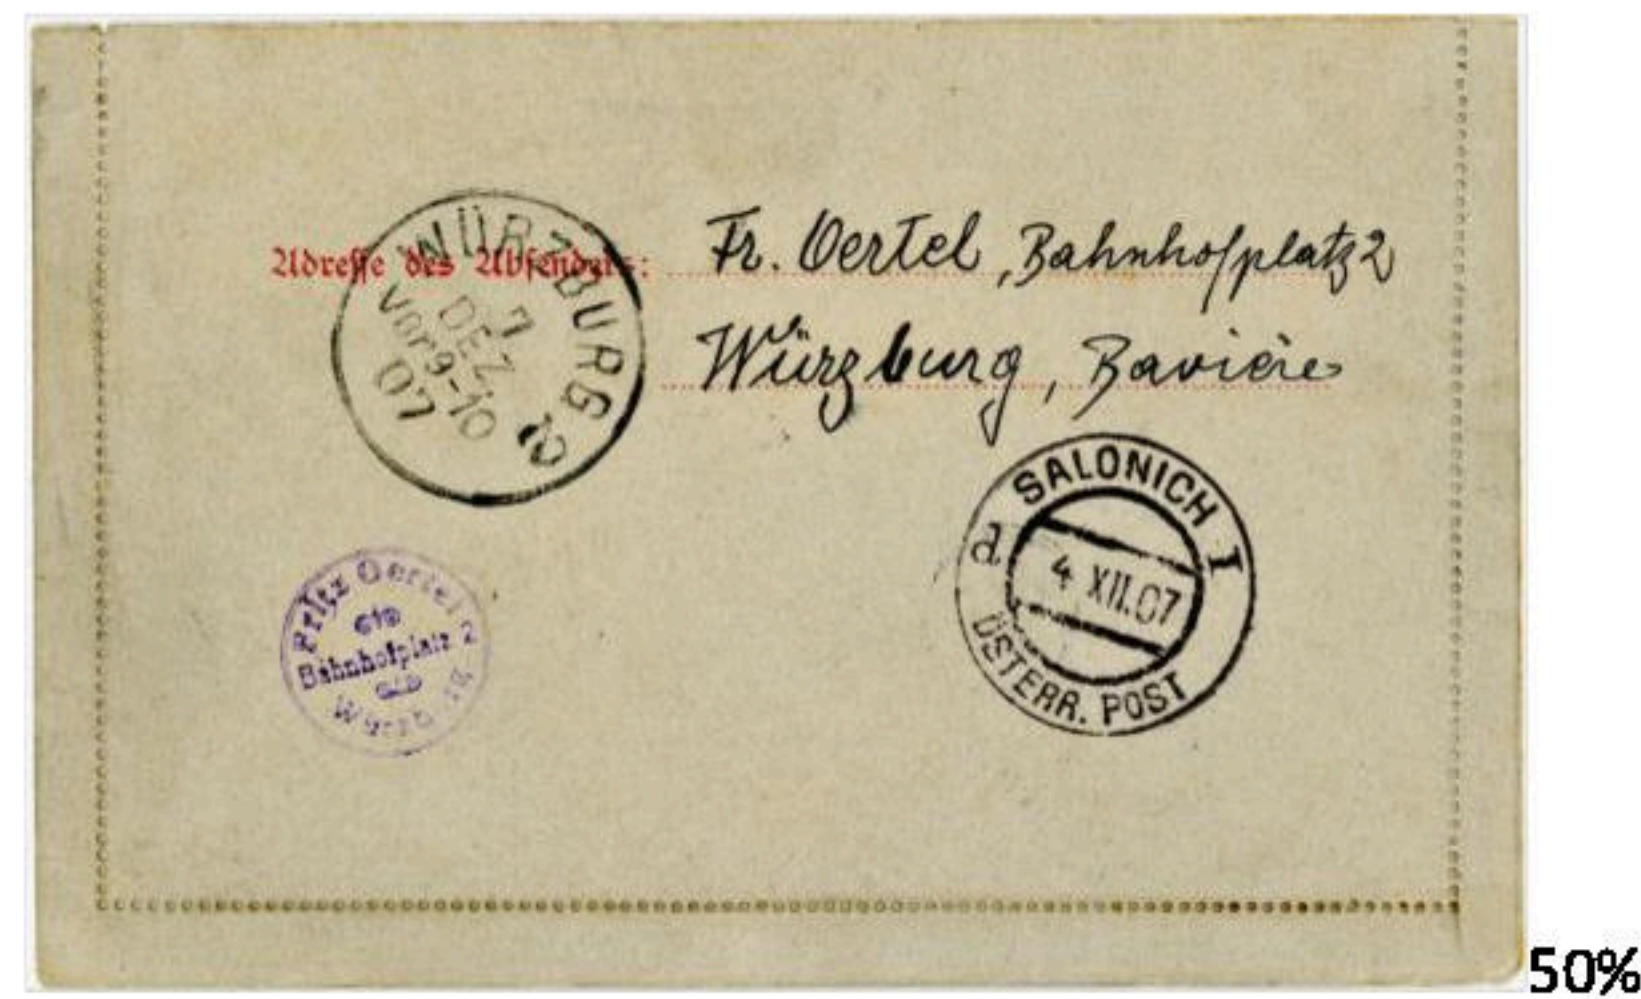 Adresse des Absenders: Fr. Oertel, Bahnhofplatz 2
Würzburg, Bavière
WÜRZBURG 2
7
DEZ.
Vor 9-10
07
SALONICH I
a
4 XII.07
ÖSTERR. POST
Fritz Oertel
Bahnhofplatz 2
50%